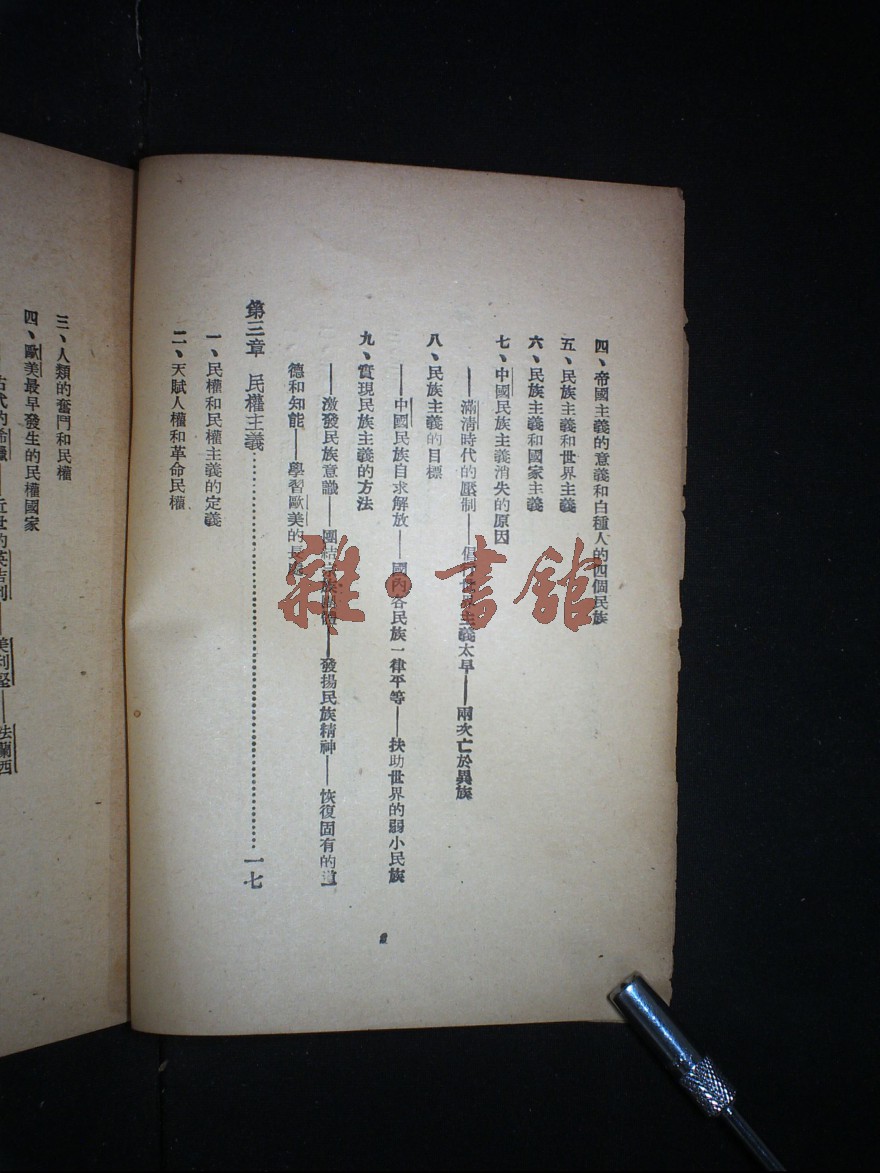 四、帝國主義的意義和白種人的四個民族
五、民族主義和世界主義
六、民族主義和國家主義
七、中國民族主義消失的原因
——滿清時代的壓制——倡 世界主義太早——兩次亡於異族
八、民族主義的目標
——中國民族自求解放——國內各民族一律平等——扶助世界的弱小民族
九、實現民族主義的方法
——激發民族意識——團結宗族團體——發揚民族精神——恢復固有的道
德和知能——學習歐美的長
第三章 民權主義⋯⋯⋯⋯⋯⋯⋯⋯⋯⋯⋯⋯一七
一、民權和民權主義的定義
二、天賦人權和革命民權
三、人類的奮鬥和民權
四、歐美最早發生的民權國家
古代的希臘——近世的英吉利——美利堅——法蘭西
雜·書館